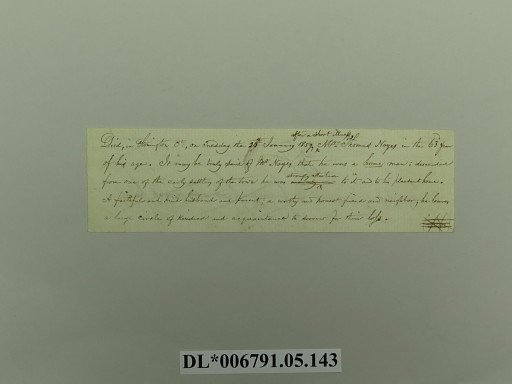 after a short illness
Died, in Abington Ct., on Tuesday the 20th January 1857, Mr. Thomas Noyes in the 63 year
of his age. It may be truly said of Mr Noyes that he was a home man; descended
strongly attached
from one of the early settlers of the town he was to it and to his pleasant home.
A faithful and kind husband and parent; a worthy and honest friend and neighbor; he leaves
a large circle of kindred and acquaintance to sorrow for their loss.
DL*006791.05.143